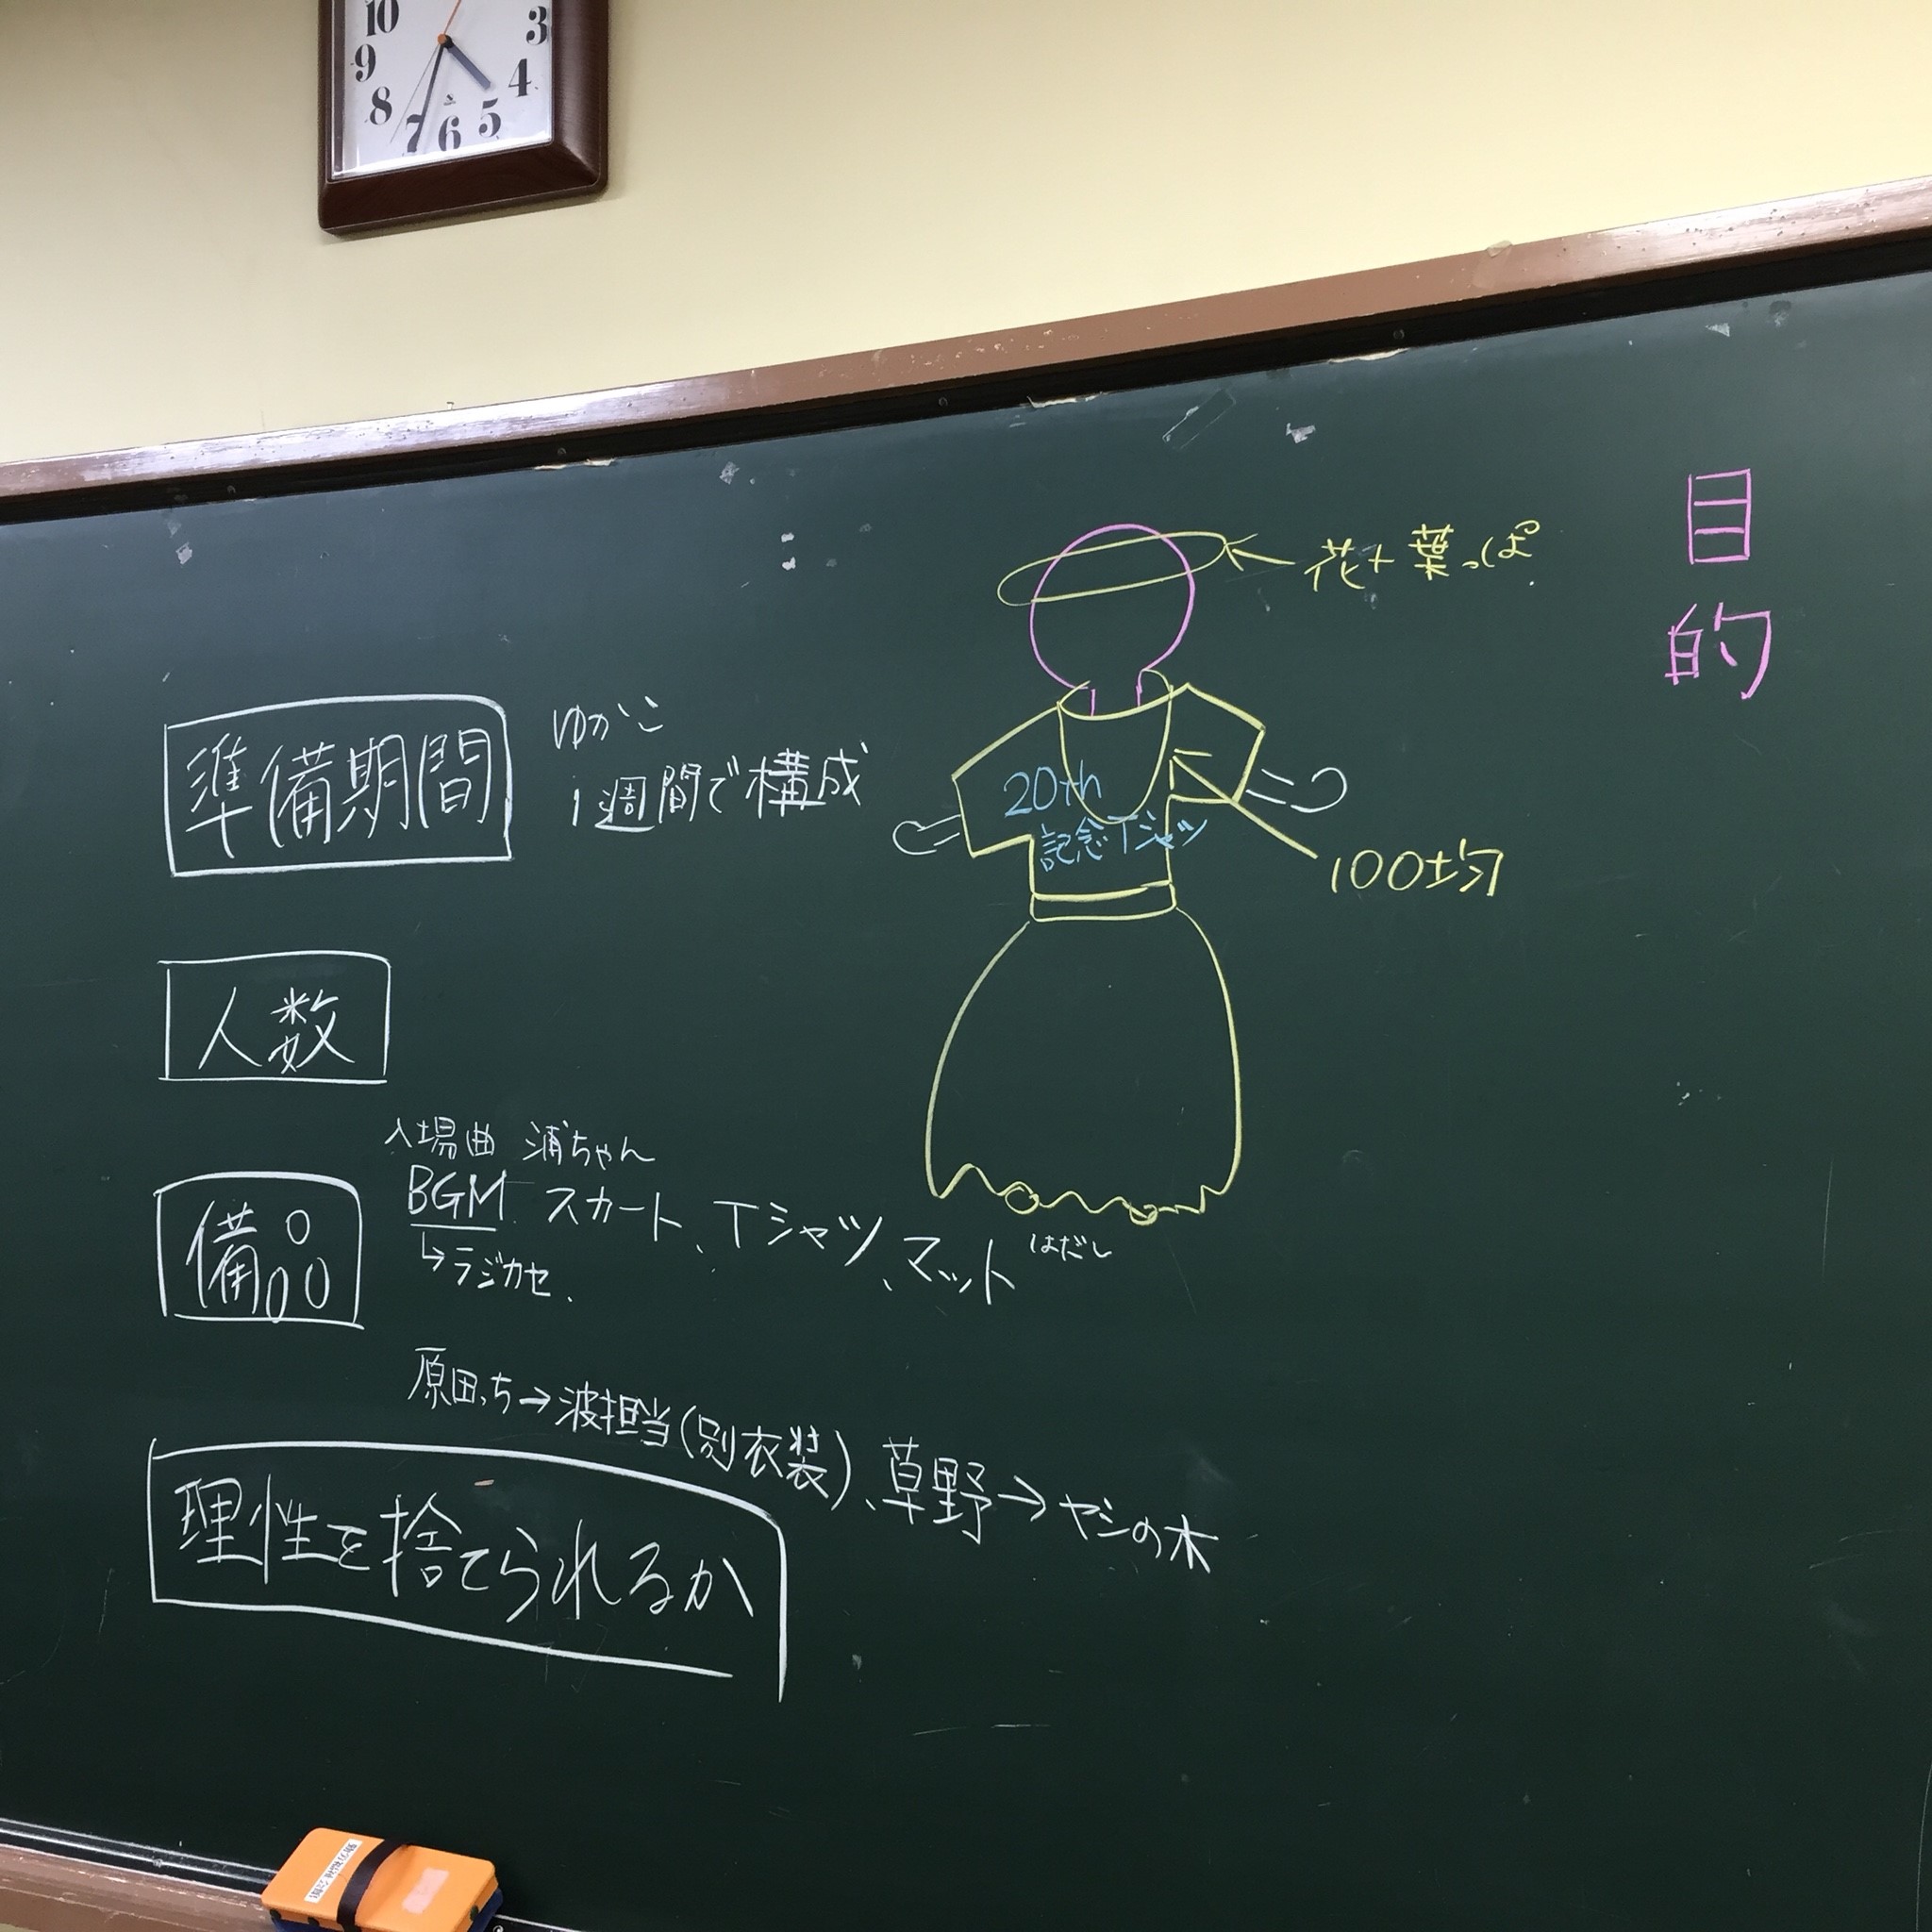 10
9
8
7
6
5
4
3
目的
花+葉っぱ
20th
記念Tシャツ
100均
準備期間
ゆかこ
1週間で構成
人数
備品
入場曲 浦ちゃん
BGM スカート、Tシャツ、マット
はだし
↳ラジカセ、
原田っち→波担当(別衣装)、草野→ヤシの木
理性を捨てられるか